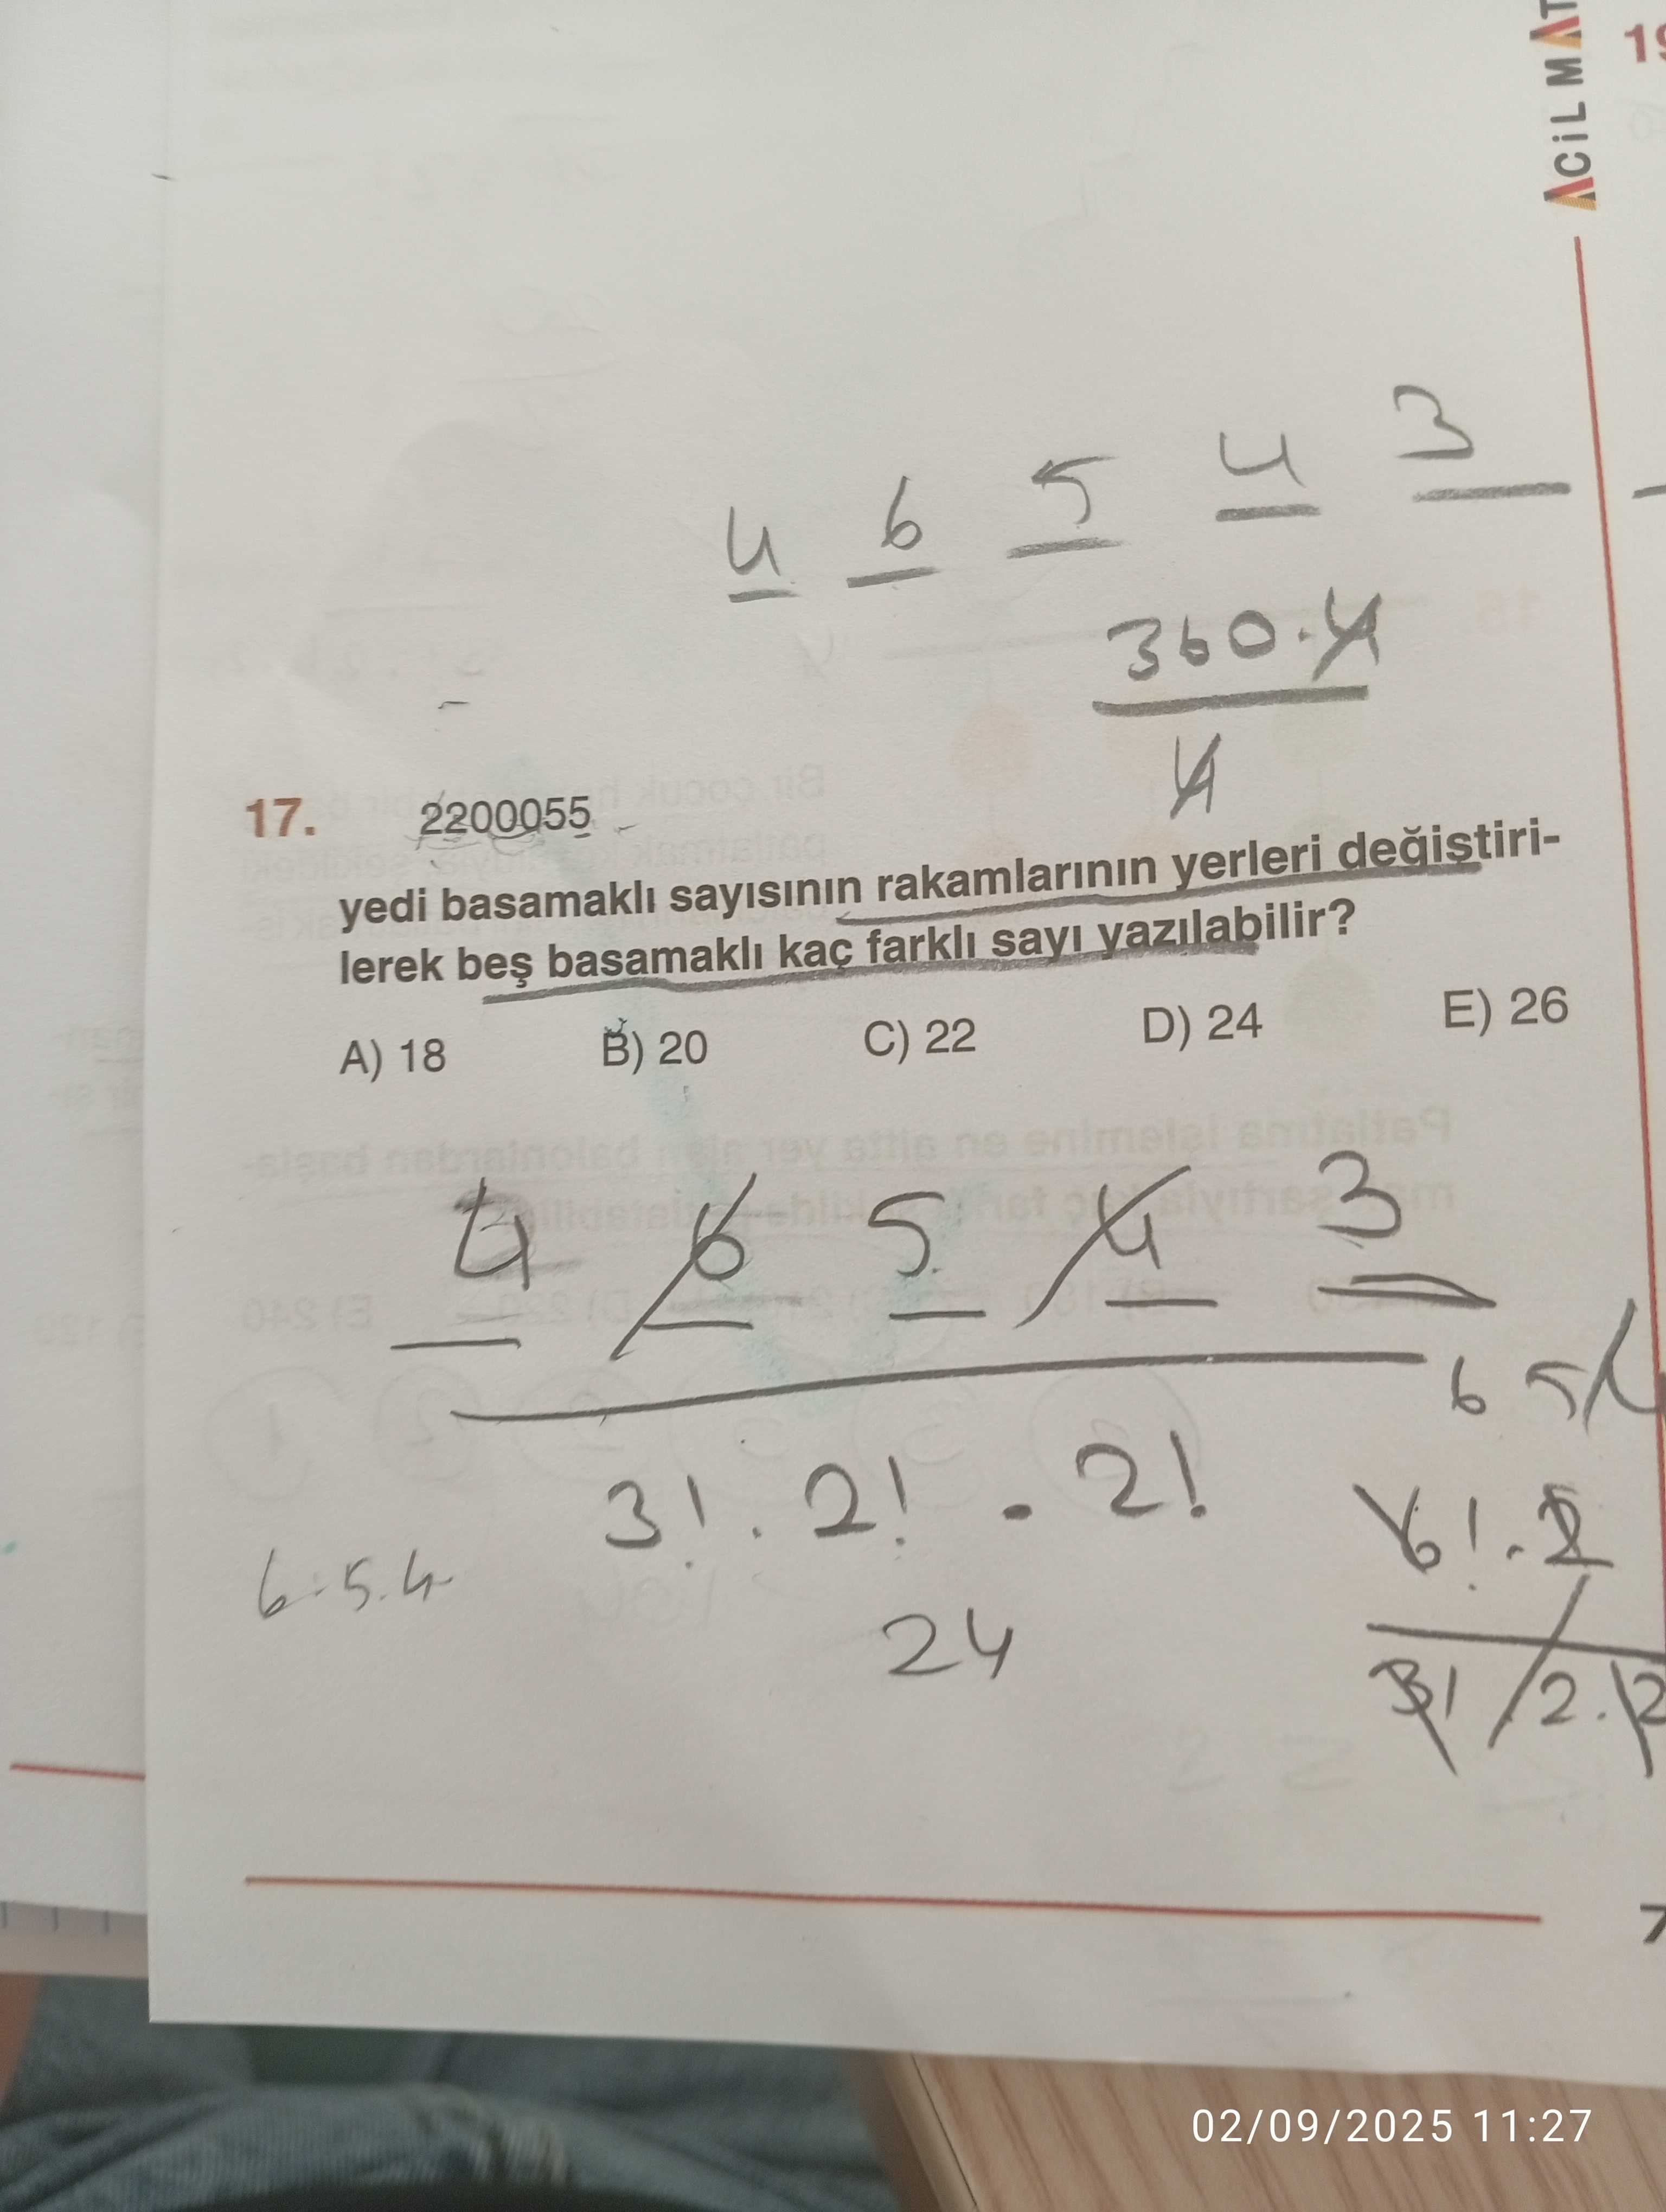 ACİL MAT
19
4 6 5 4 3
360.4
4
17. 2200055
yedi basamaklı sayısının rakamlarının yerleri değiştiri-
lerek beş basamaklı kaç farklı sayı yazılabilir?
A) 18 B) 20 C) 22 D) 24 E) 26
4 6 5 4 3
3! . 2! . 2!
24
6.5.4
6 5
6! . 2
3! 2 . 2
7
02/09/2025 11:27